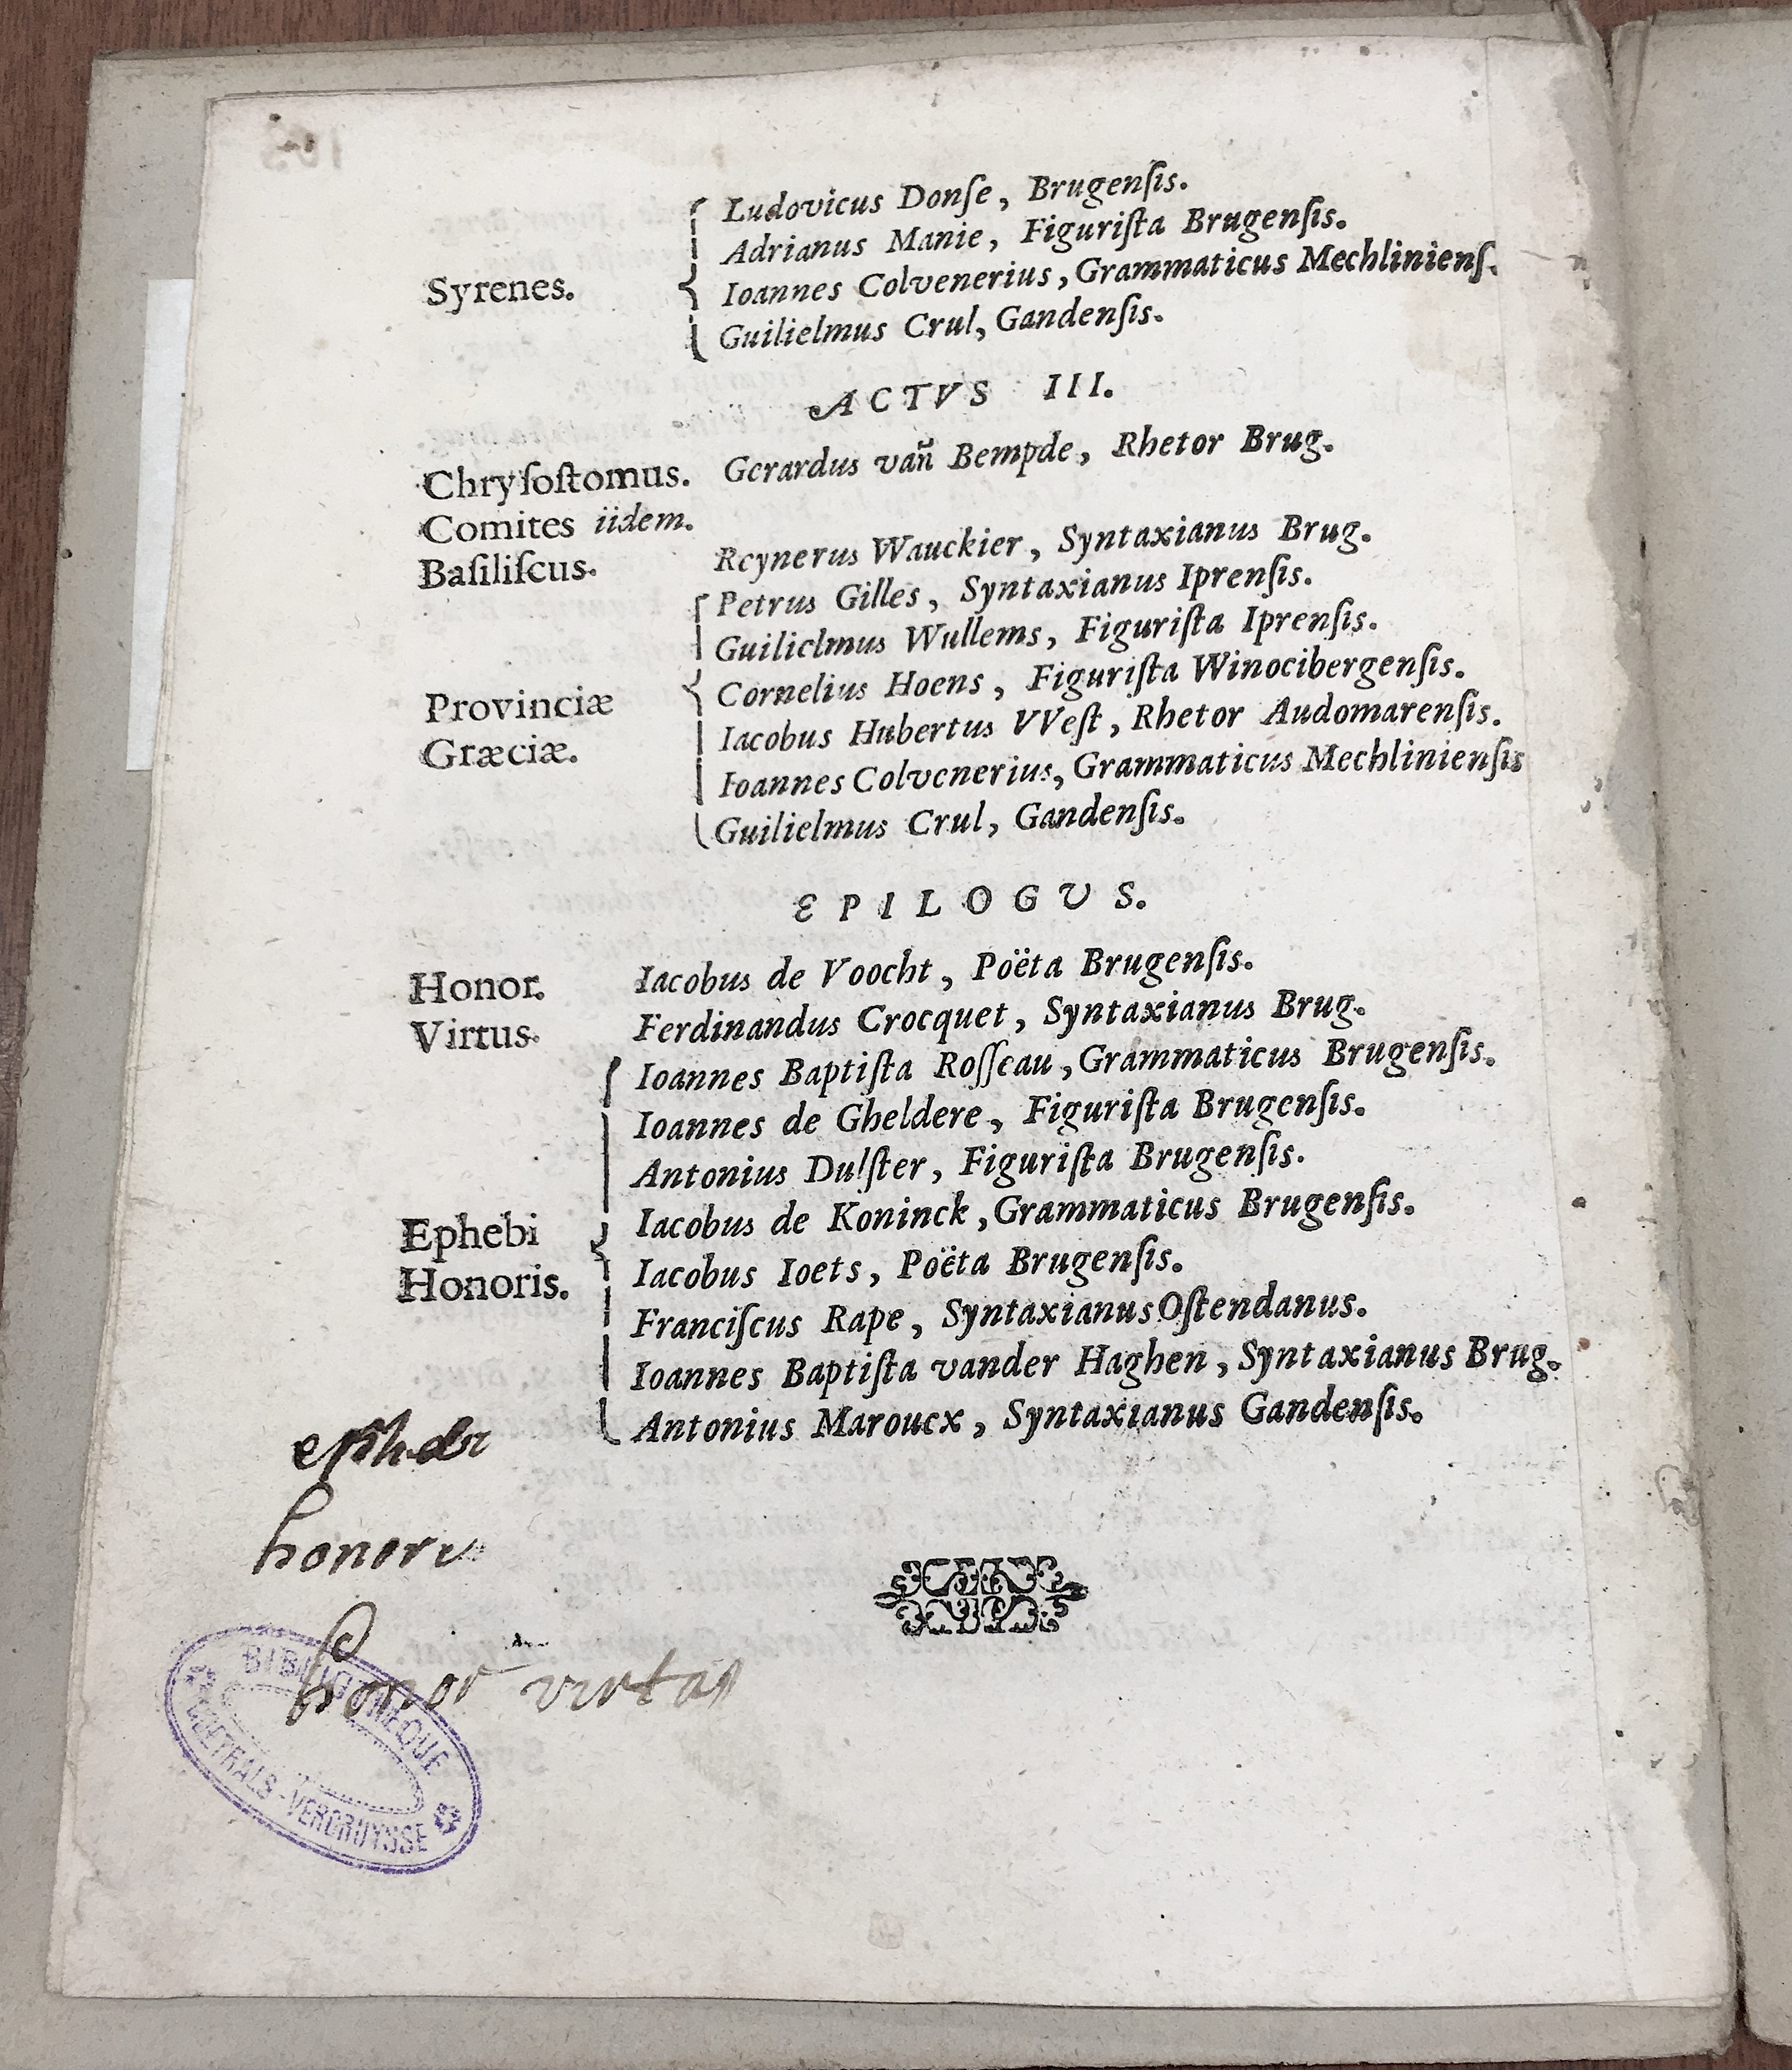 Syrenes.
Ludovicus Donſe, Brugenſis.
Adrianus Manie, Figuriſta Brugenſis.
Ioannes Colvenerius, Grammaticus Mechlinienſ.
Guilielmus Crul, Gandenſis.
ACTVS III.
Chryſoſtomus. Gerardus vañ Bempde, Rhetor Brug.
Comites iidem.
Baſiliſcus. Reynerus Wauckier, Syntaxianus Brug.
Provinciæ
Græciæ.
Petrus Gilles, Syntaxianus Iprenſis.
Guilielmus Wullems, Figuriſta Iprenſis.
Cornelius Hoens, Figuriſta Winocibergenſis.
Iacobus Hubertus VVeſt, Rhetor Audomarenſis.
Ioannes Colvenerius, Grammaticus Mechlinienſis
Guilielmus Crul, Gandenſis.
EPILOGUS.
Honor. Iacobus de Voocht, Poëta Brugenſis.
Virtus. Ferdinandus Crocquet, Syntaxianus Brug.
Ephebi
Honoris.
Ioannes Baptiſta Roſſeau, Grammaticus Brugenſis.
Ioannes de Gheldere, Figuriſta Brugenſis.
Antonius Dulſter, Figuriſta Brugenſis.
Iacobus de Koninck, Grammaticus Brugenſis.
Iacobus Ioets, Poëta Brugenſis.
Franciſcus Rape, Syntaxianus Oſtendanus.
Ioannes Baptiſta vander Haghen, Syntaxianus Brug.
Antonius Maroucx, Syntaxianus Gandenſis.
honoris
honor virtus
BIBLIOTHEQUE
GOETHALS-VERCRUYSSE